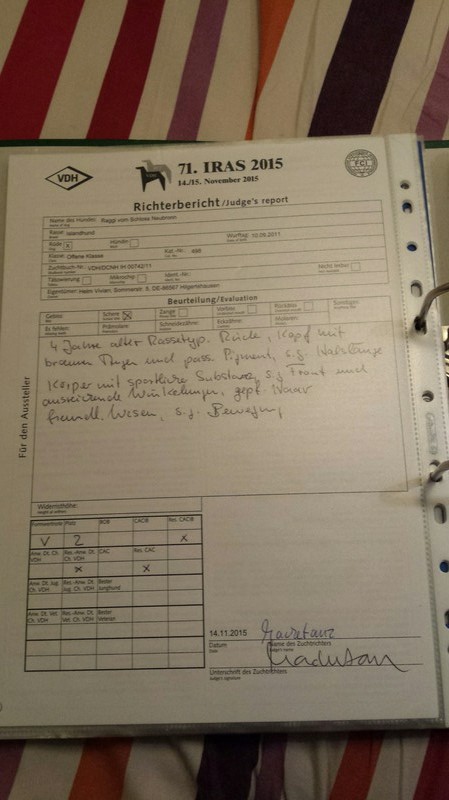 VDH
71. IRAS 2015
14./15. November 2015
FCI
Richterbericht/Judge's report
Name des Hundes: Raggi vom Schloss Neubronn
Rasse: Islandhund
Rüde x Hündin Wurftag: 10.09.2011
Klasse: Offene Klasse Kat.-Nr.: 486
Zuchtbuch-Nr.: VDH/DCNH IH 00742/11
Tätowierung Mikrochip Ident.-Nr.: Nicht lesbar
Eigentümer: Helm Vivien, Sommerstr. 5, DE-86567 Hilgertshausen
Beurteilung/Evaluation
Gebiss: Schere x Zange Vorbiss Rückbiss Sonstiges:
Es fehlen: Prämolare: Schneidezähne: Eckzähne: Molaren:
4 Jahre alter Rassetyp. Rüde, Kopf mit
braunen Augen und pass. Pigment, s.g. Halslänge
Körper mit sportliche Substanz, s.g. Front und
ausreichende Winkelungen, gepf. Haar
freundl. Wesen, s.g. Bewegung
Für den Aussteller
Widerristhöhe:
Formwertnote Platz BOB CACIB Res. CACIB
V 2 x
Anw. Dt. Ch. VDH Res.-Anw. Dt. Ch. VDH CAC Res. CAC
x x
Anw. Dt. Jug. Ch. VDH Res.-Anw. Dt. Jug. Ch. VDH Bester Junghund
Anw. Dt. Vet. Ch. VDH Res.-Anw. Dt. Vet. Ch. VDH Bester Veteran
14.11.2015
Datum Name des Zuchtrichters
Date Judge's name
Unterschrift des Zuchtrichters
Judge's signature